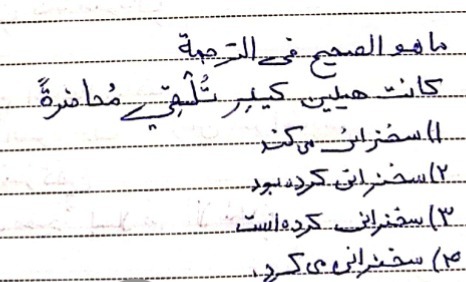 ما هو الصحيح في الترجمة
كانت هيلين كيلر تُلْقي مُحاضرةً
۱) سخنرانی می‌کند
۲) سخنرانی کرده بود
۳) سخنرانی کرده است
۴) سخنرانی می کرد.